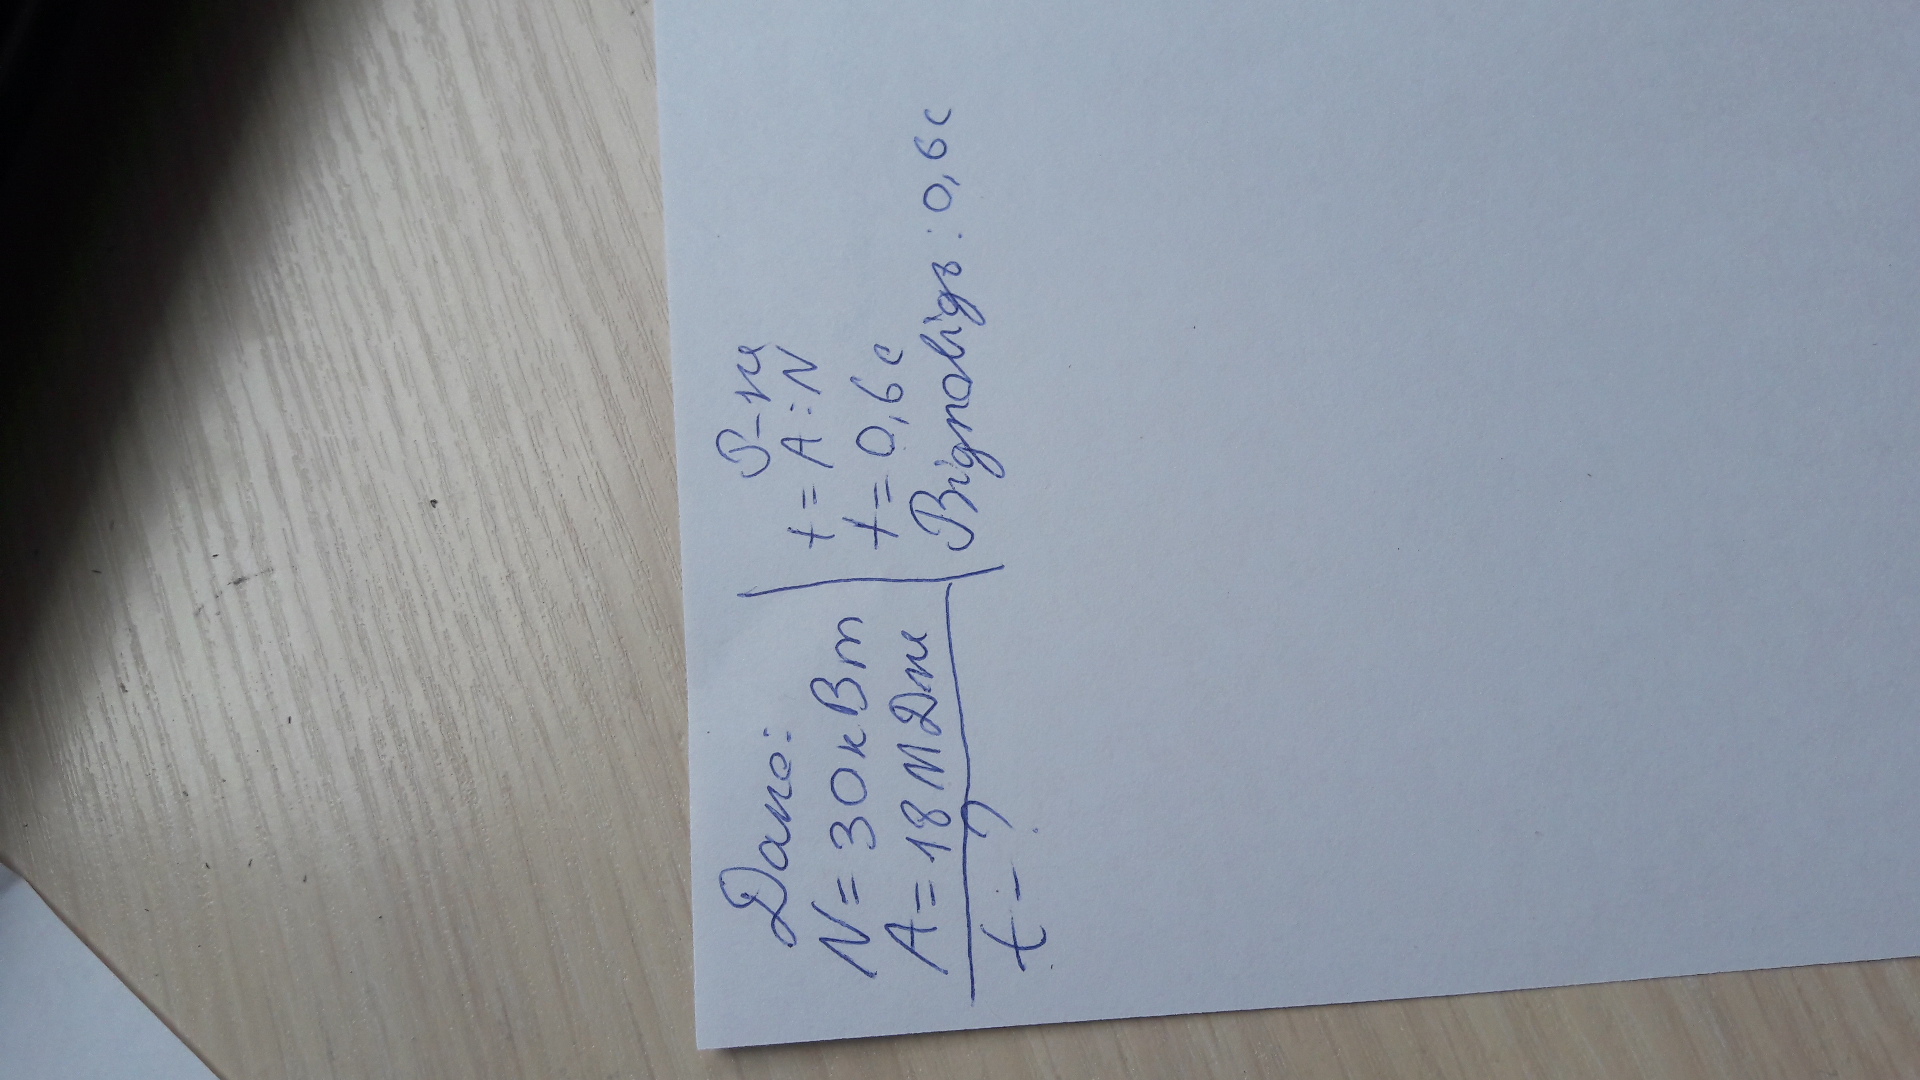 Дано:
N = 30 кВт
A = 18 МДж
t - ?
Р-ня
t = A : N
t = 0,6 с
Відповідь : 0,6 с